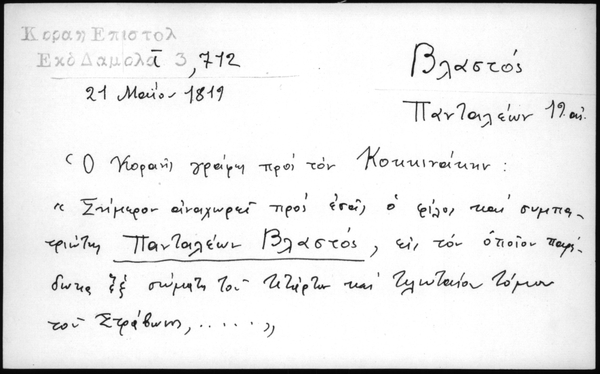 Κοραη Επιστολ
Εκδ Δαμαλα Ι 3, 712
21 Μαΐου 1819
Βλαστός
Πανταλέων 19.αι.
Ὁ Κοραῆς γράφει πρὸς τὸν Κοκκινάκην:
« Σήμερον ἀναχωρεῖ πρὸς ἐσᾶς ὁ φίλος καὶ συμπα-
τριώτης Πανταλέων Βλαστός, εἰς τὸν ὁποῖον παρέ-
δωκα ἓξ σώματα τοῦ τετάρτου καὶ τελευταίου τόμου
τοῦ Στράβωνος, ..... »